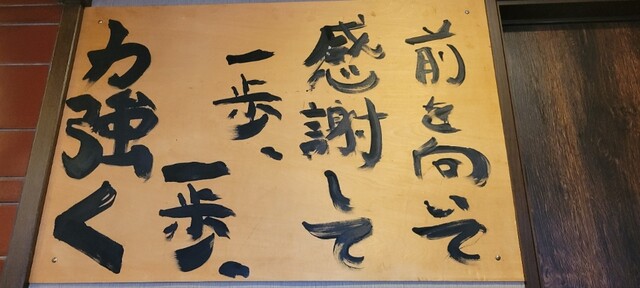 前を向いて
感謝して
一歩、
一歩、
力強く